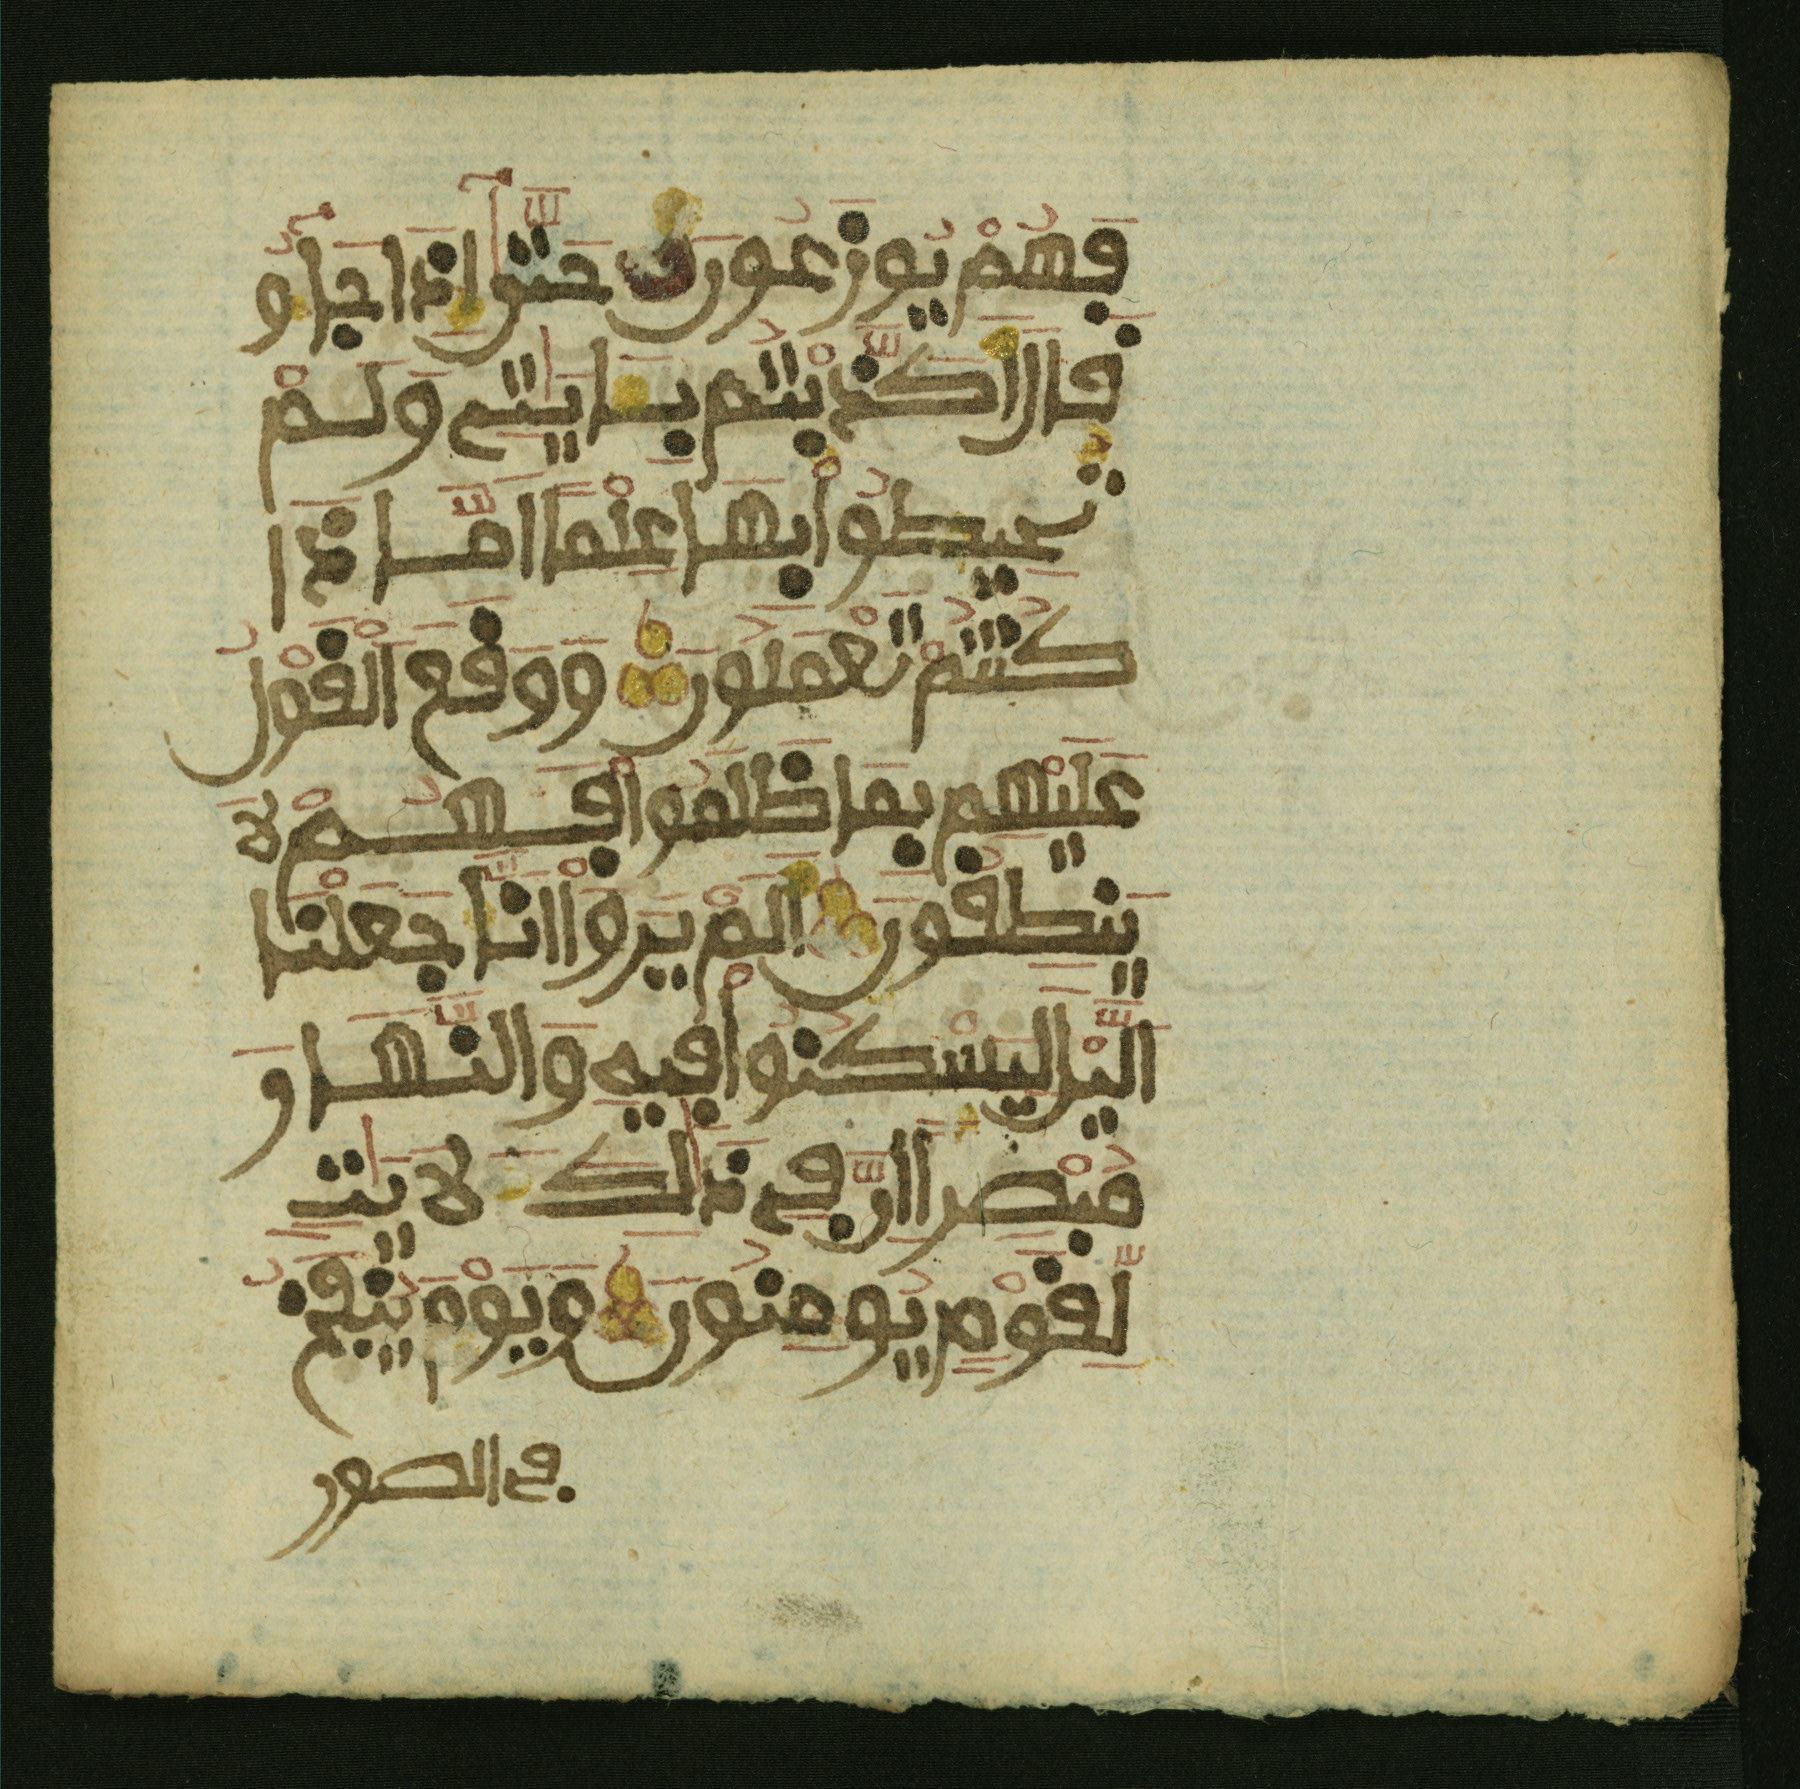 فَهُمْ يُوزَعُونَ حَتَّىٰ إِذَا جَآءُو
قَالَ أَكَذَّبْتُم بِـَٔايَٰتِے وَلَمْ
تُحِيطُوا۟ بِهَا عِلْمًا أَمَّا ذَا
كُنتُمْ تَعْمَلُونَ وَوَقَعَ ٱلْقَوْلُ
عَلَيْهِم بِمَا ظَلَمُوا۟ فَهُمْ لَا
يَنطِقُونَ أَلَمْ يَرَوْا۟ أَنَّا جَعَلْنَا
ٱلَّيْلَ لِيَسْكُنُوا۟ فِيهِ وَٱلنَّهَارَ
مُبْصِرًا إِنَّ فِے ذَٰلِكَ لَأٓيَٰتٍ
لِّقَوْمٍ يُومِنُونَ وَيَوْمَ يُنفَخُ
فے الصور